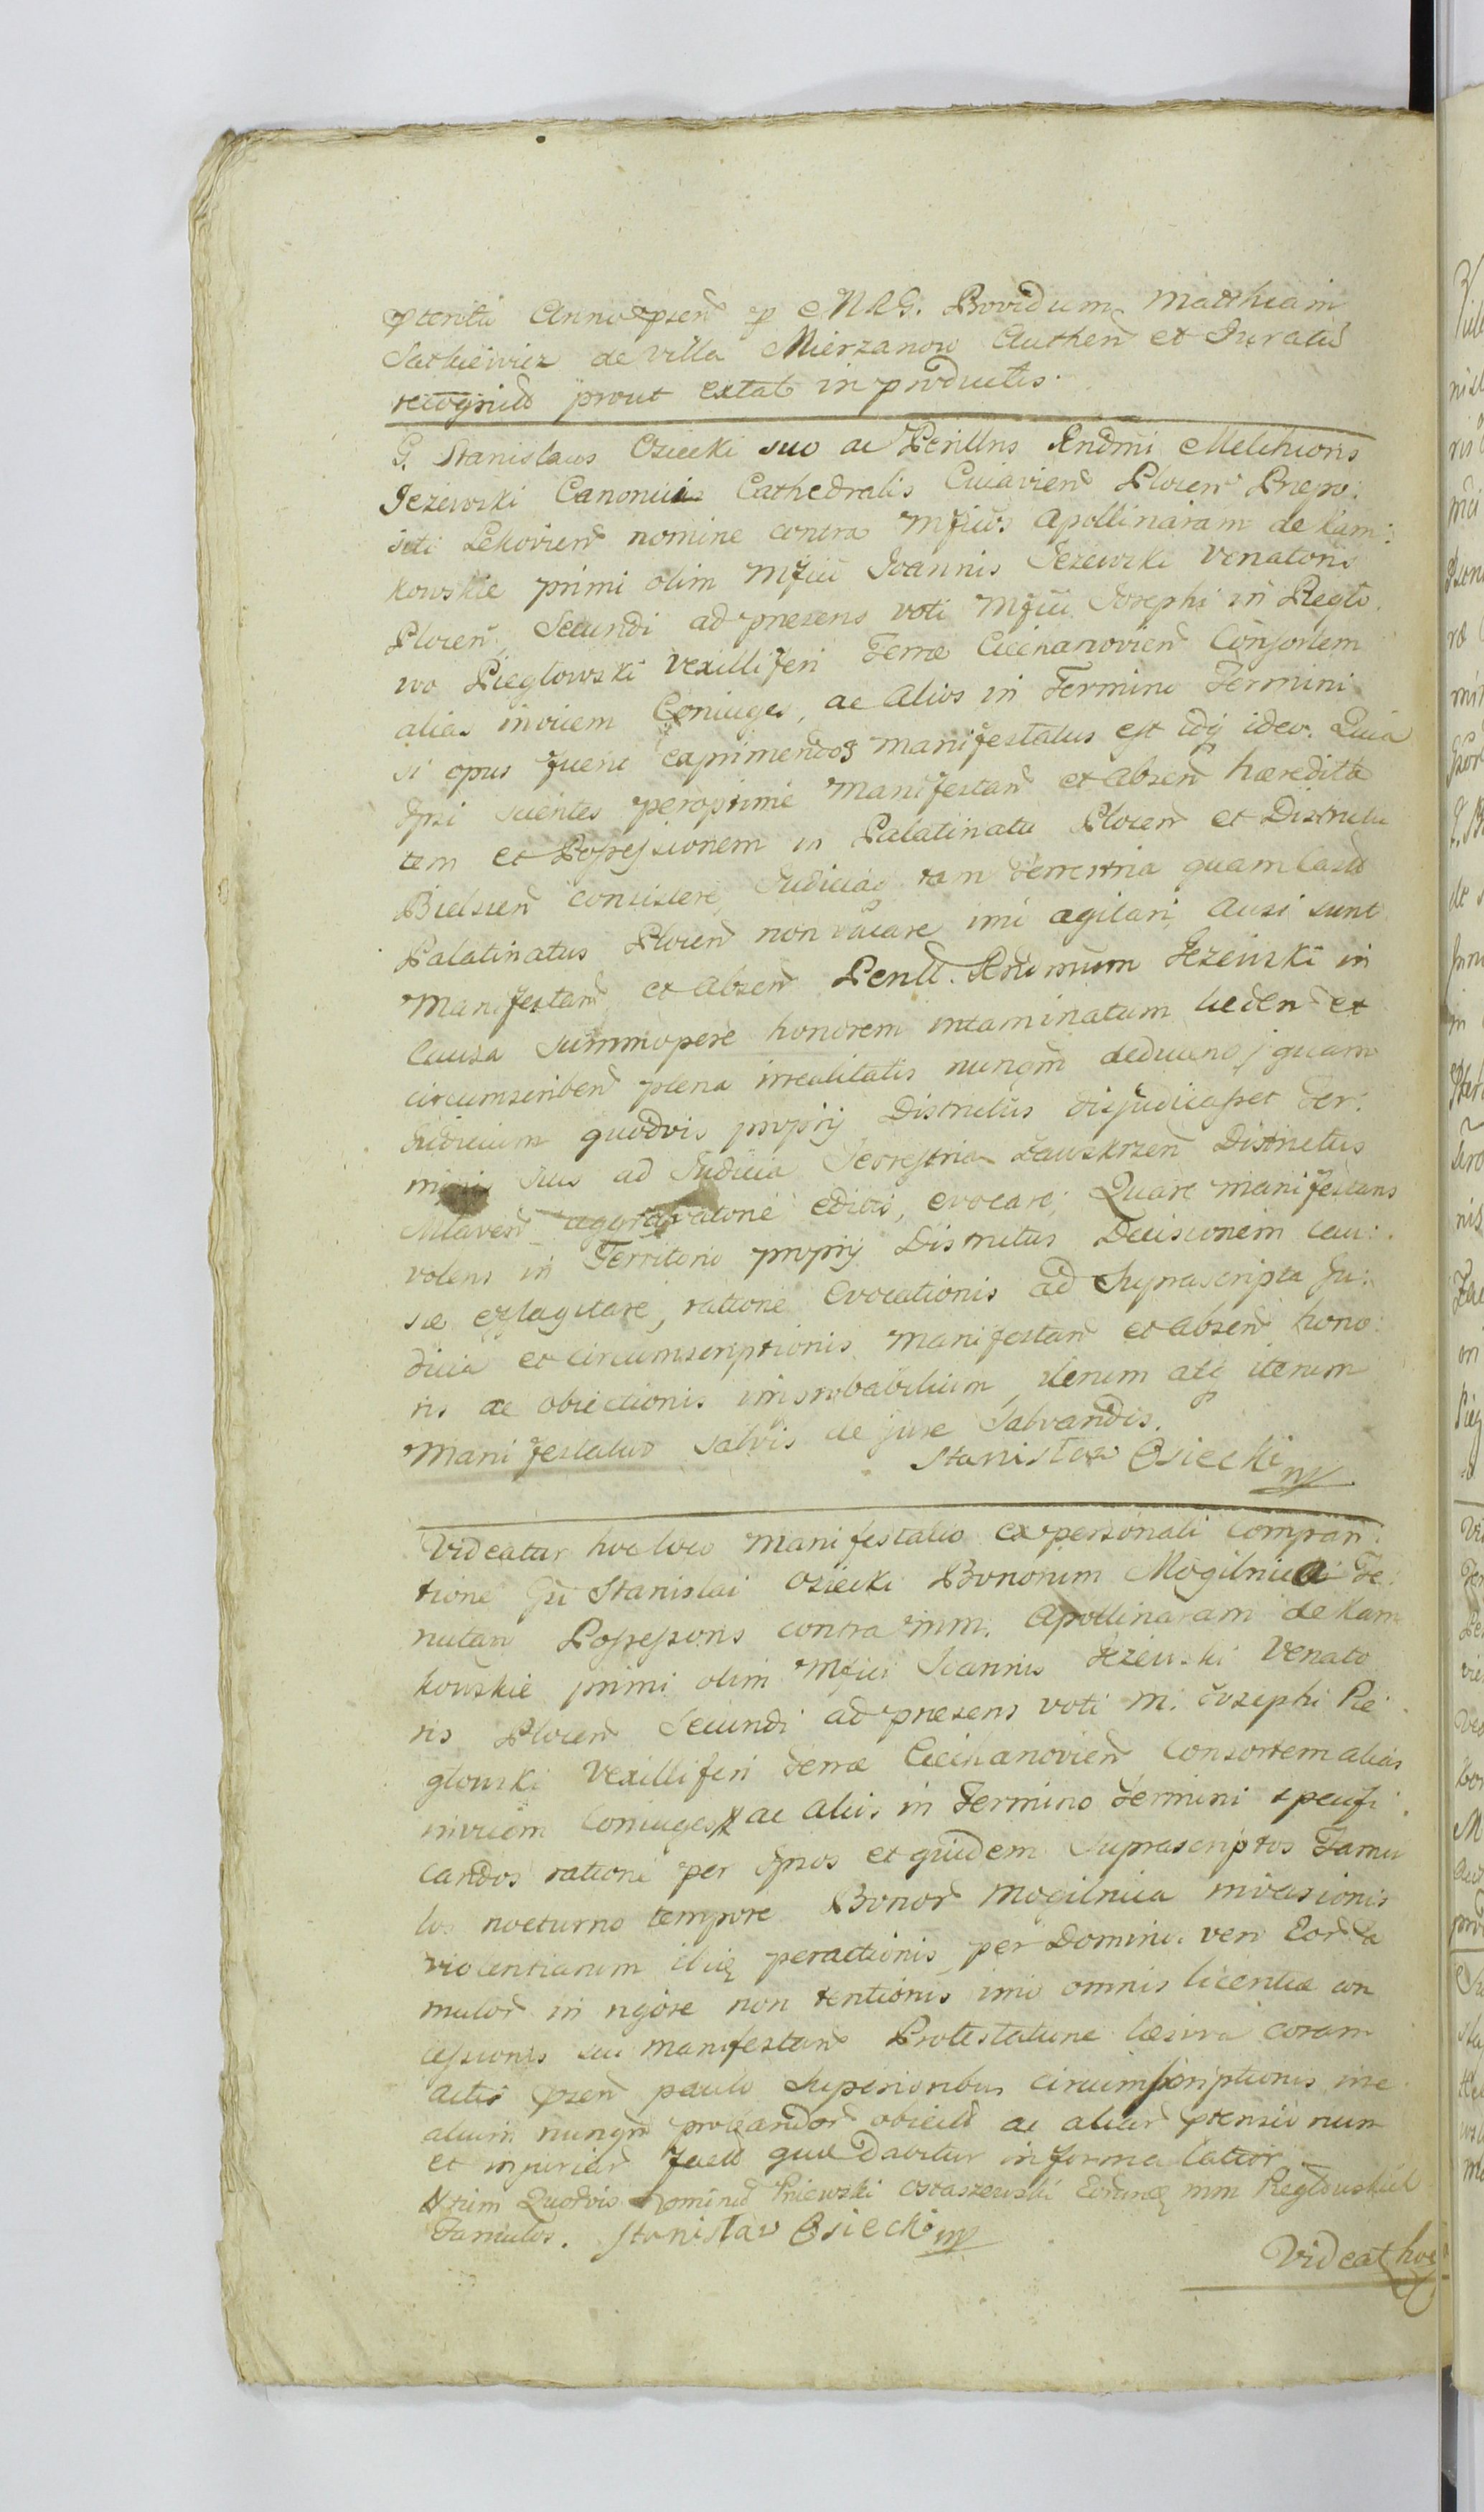 Anno pñen p MRG. Providum Matthiam
Satkiewicz de villa Mierzanow Authen et Juratū
recognit prout extat in productis.
G. Stanislaus Osiecki suo ac Perillris Rndmi Melchioris
Jezewski Canonici Cathedralis Cuiavien Plocen Præpo:
siti Lekovien nomine contra Mficū Apollinaram de Kam:
kowskie primi olim Mfici Joannis Jezewski Venatoris
Plocen, Secundi ad præsens voti Mfici Josephi in Pieglo
wo Pieglowski Vexilliferi Terræ Ciechanovien Consortem
alias invicem Coniuges, ac alios in Termino Termini
si opus fuerit exprimendos manifestatus est idq ideo. Quia
Ipsi scientes peroptime Manifestan et Absen hæredita
tem et Possessionem in Palatinatu Plocen et Districtu
Bielscen consistere, Judiciaq tam terrestria quam Castr
Palatinatus Plocen non vacare imo agitari, ausi sunt
Manifestan et absen Perill. Rndmum Jezewski in
Causa summopere honorem intaminatum læden et
circumscriben plena irrealitatis nunqm deducend, quam
Judicium quodvis proprij Districtus disjudicasset Ter:
minis suis ad Judicia Terrestria Zawskrzen Districtus
Mlaven aggravatorie editis, evocare; Quare manifestans
volens in Territorio proprij Districtus Decisionem cau:
sæ efflagitare, ratione Evocationis ad Suprascripta Ju:
dicia et circumscriptionis manifestan et absen hono:
ris ac obiectionis improbabilium, iterum atq iterum
Manifestatur salvis de jure Salvandis.
Stanisław Osiecki mp
Videatur hoc loco manifestatio ex personali comparri:
tione Gsi Stanislai Osiecki Bonorum Mogilnica Te:
nutarij Possessoris contra mm. Apollinaram de Kam
kowskie primi olim Mfici Joannis Jezewski Venato
ris Plocen Secundi ad præsens voti M. Josephi Pie
glowski Vexilliferi terræ Ciechanovien Consortem alias
invicem Coniuges # ac aliis in Termino Termini specifi
candos ratione per Ipsos et quidem Suprascriptos Famu
los nocturno tempore Bonor Mogilnica invasionis
violentiarum ibiq peractionis, per Domino. vero Eor Fa
mulor in rigore non tentionis imo omnis licentiæ con
cessionis sui manifestan Protestatione læsiva coram
actis pñen paulo superioribus circumscriptionis irre
alium nunqm probandor obiect ac aliar prensionum
et injuriar fact quæ Dabitur in forma latior
# tum Quosvis Nominat Pniewski Ostaszewski Eorundq mm Pieglowskich
Famulos. Stanisław Osiecki mp
Videat hoc